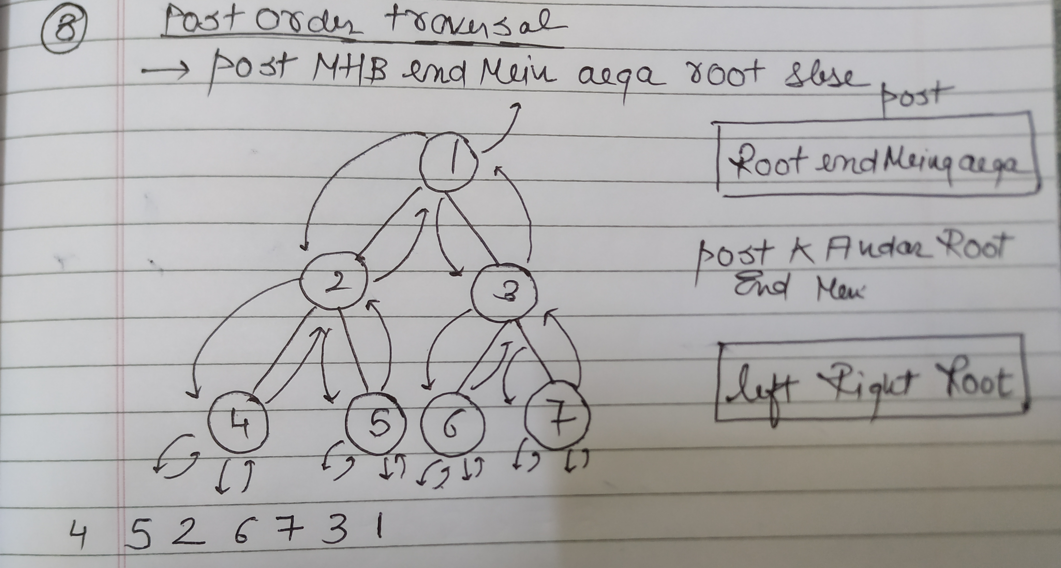 8 Post Order traversal
→ post MHB end Mein aega root sbse
post
Root end Meing aega
1
post K Andar Root
End Mein
2 3
left Right Root
4 5 6 7
4 5 2 6 7 3 1